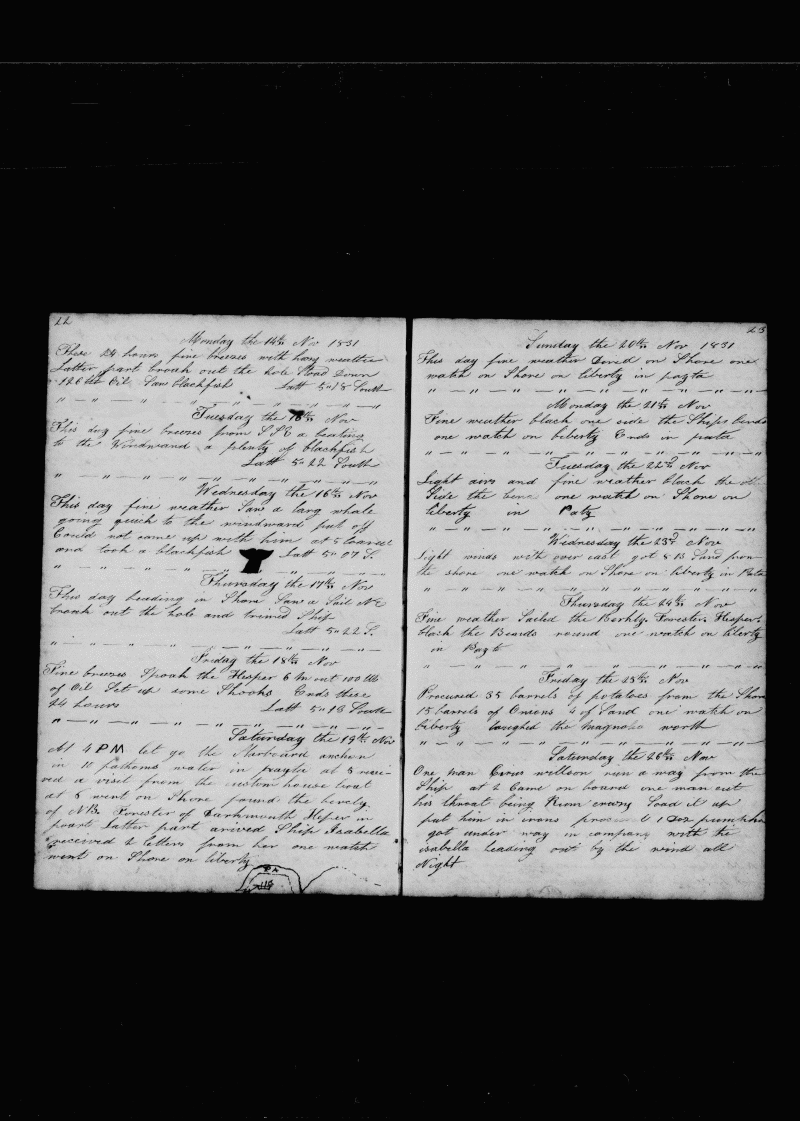 22
Monday the 14th Nov 1831
These 24 hours fine breezes with hazy weather
Latter part broak out the hole Stoad Down
126 bbs Oil Saw blackfish Latt 5°18 South
Tuesday the 15th Nov
This day fine breezes from SSE a beating
to the Windward a plenty of blackfish
Latt 5°22 South
Wednesday the 16th Nov
This day fine weather Saw a larg whale
going quick to the windward put off
Could not come up with him at 5 loared
and took a blackfish Latt 5°07 S.
Thursday the 17th Nov
This day heading in Shore Saw a Sail NE
broak out the hole and trimed Ship
Latt 5°22 S.
Friday the 18th Nov
Fine breezes Spoak the Hesper 6 m out 100 bbs
of Oil Set up some Shooks Ends these
24 hours Latt 5°13 South
Saturday the 19th Nov
At 4 PM let go the Larboard anchor
in 10 fathoms water in Payta at 5 recei-
ved a visit from the custom house boat
at 8 went on Shore found the
of NB. Forester of Darkmouth Hesper in
poart Latter part arived Ship Isabella
received 2 letters from her one watch
went on Shore on liberty
23
Sunday the 20th Nov 1831
This day fine weather on Shore one
watch on Shore on liberty in payta
Monday the 21th Nov
Fine weather black one side the Ships bends
one watch on liberty Ends in paita
Tuesday the 22d Nov
Light airs and fine weather black the
Side the bend one watch on Shore on
liberty in Payta
Wednesday the 23d Nov
Light winds with over cast got 5 B Sand from
the shore one watch on Shore on liberty in Pata
Thursday the 24th Nov
Fine weather Sailed the Forester Hesper
black the Beards round one watch on liberty
in Payte
Friday the 25th Nov
Procured 35 barrels of potatoes from the Shore
15 barrels of Onions 2 of Sand one watch on
liberty the
Saturday the 26th Nov
One man willson run a way from the
Ship at 2 Came on board one man cut
his throat being Rum crazy Soad it up
put him in irons 1 Doz pumpkins
got under way in company with the
isabella heading out by the wind all
Night